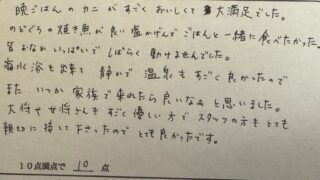 晩ごはんのカニがすごくおいしくて大満足でした。
のどぐろの焼き魚が良い塩かげんでごはんと一緒に食べたかった。
皆おなかいっぱいでしばらく動けませんでした。
海水浴も出来て静かで温泉もすごく良かったので
また、いつか家族で来れたら良いなぁと思いました。
大将や女将さんもすごく優しい方でスタッフの方もとても
親切に接して下さったのでとても良かったです。
10点満点で 10 点